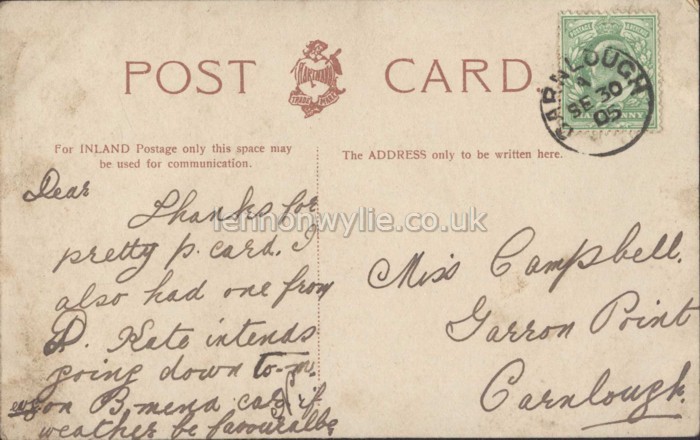 POST CARD
HARTMANN
TRADE MARK
CARNLOUGH
A
SE 30
05
For INLAND Postage only this space may
be used for communication.
The ADDRESS only to be written here.
Dear
Thanks for
pretty p. card. I
also had one from
D. Kate intends
going down to-m.
on B.mena car if
weather be favouralbe
lennonwylie.co.uk
Miss Campbell.
Garron Point
Carnlough.